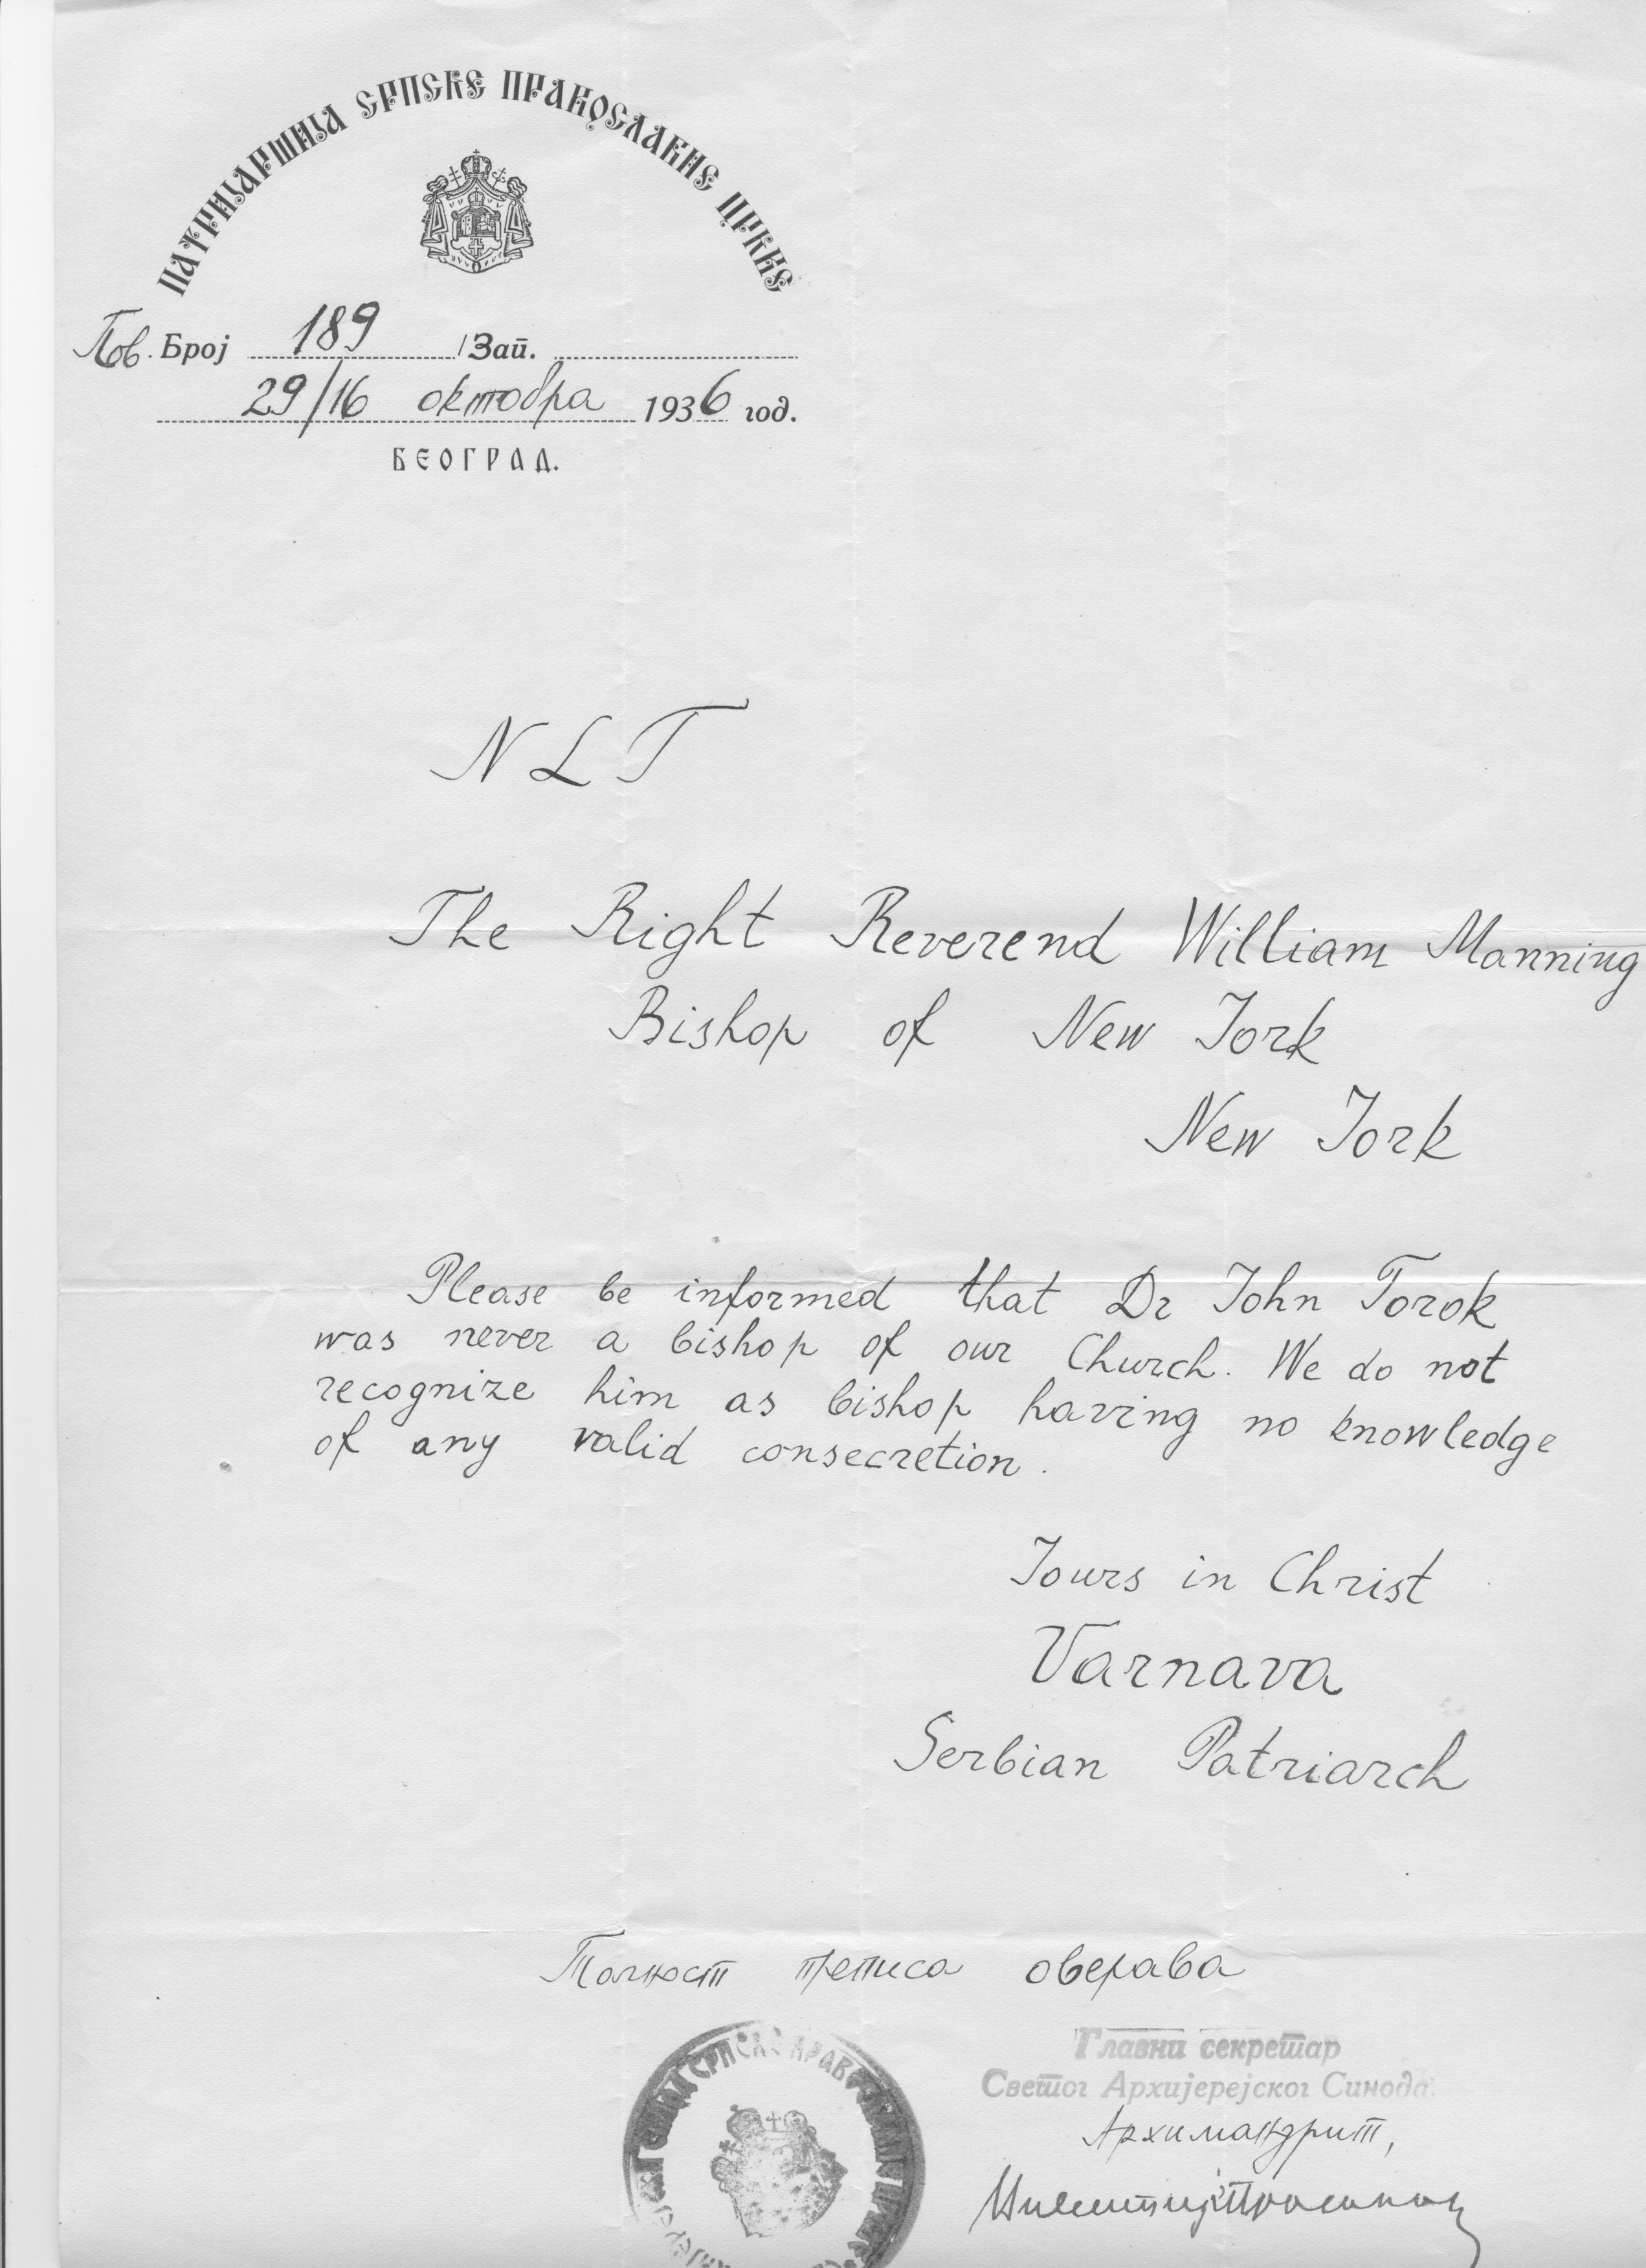 ПАТРИЈАРШИЈА СРПСКЕ ПРАВОСЛАВНЕ ЦРКВЕ
Пов. Број 189 /Зап.
29/16 октобра 1936 год.
БЕОГРАД.
NLT
The Right Reverend William Manning
Bishop of New Jork
New Jork
Please be informed that Dr John Torok
was never a bishop of our Church. We do not
recognize him as bishop having no knowledge
of any valid consecretion.
Jours in Christ
Varnava
Serbian Patriarch
Тачност преписа оверава
Главни секретар
Светог Архијерејског Синода
Архимандрит,